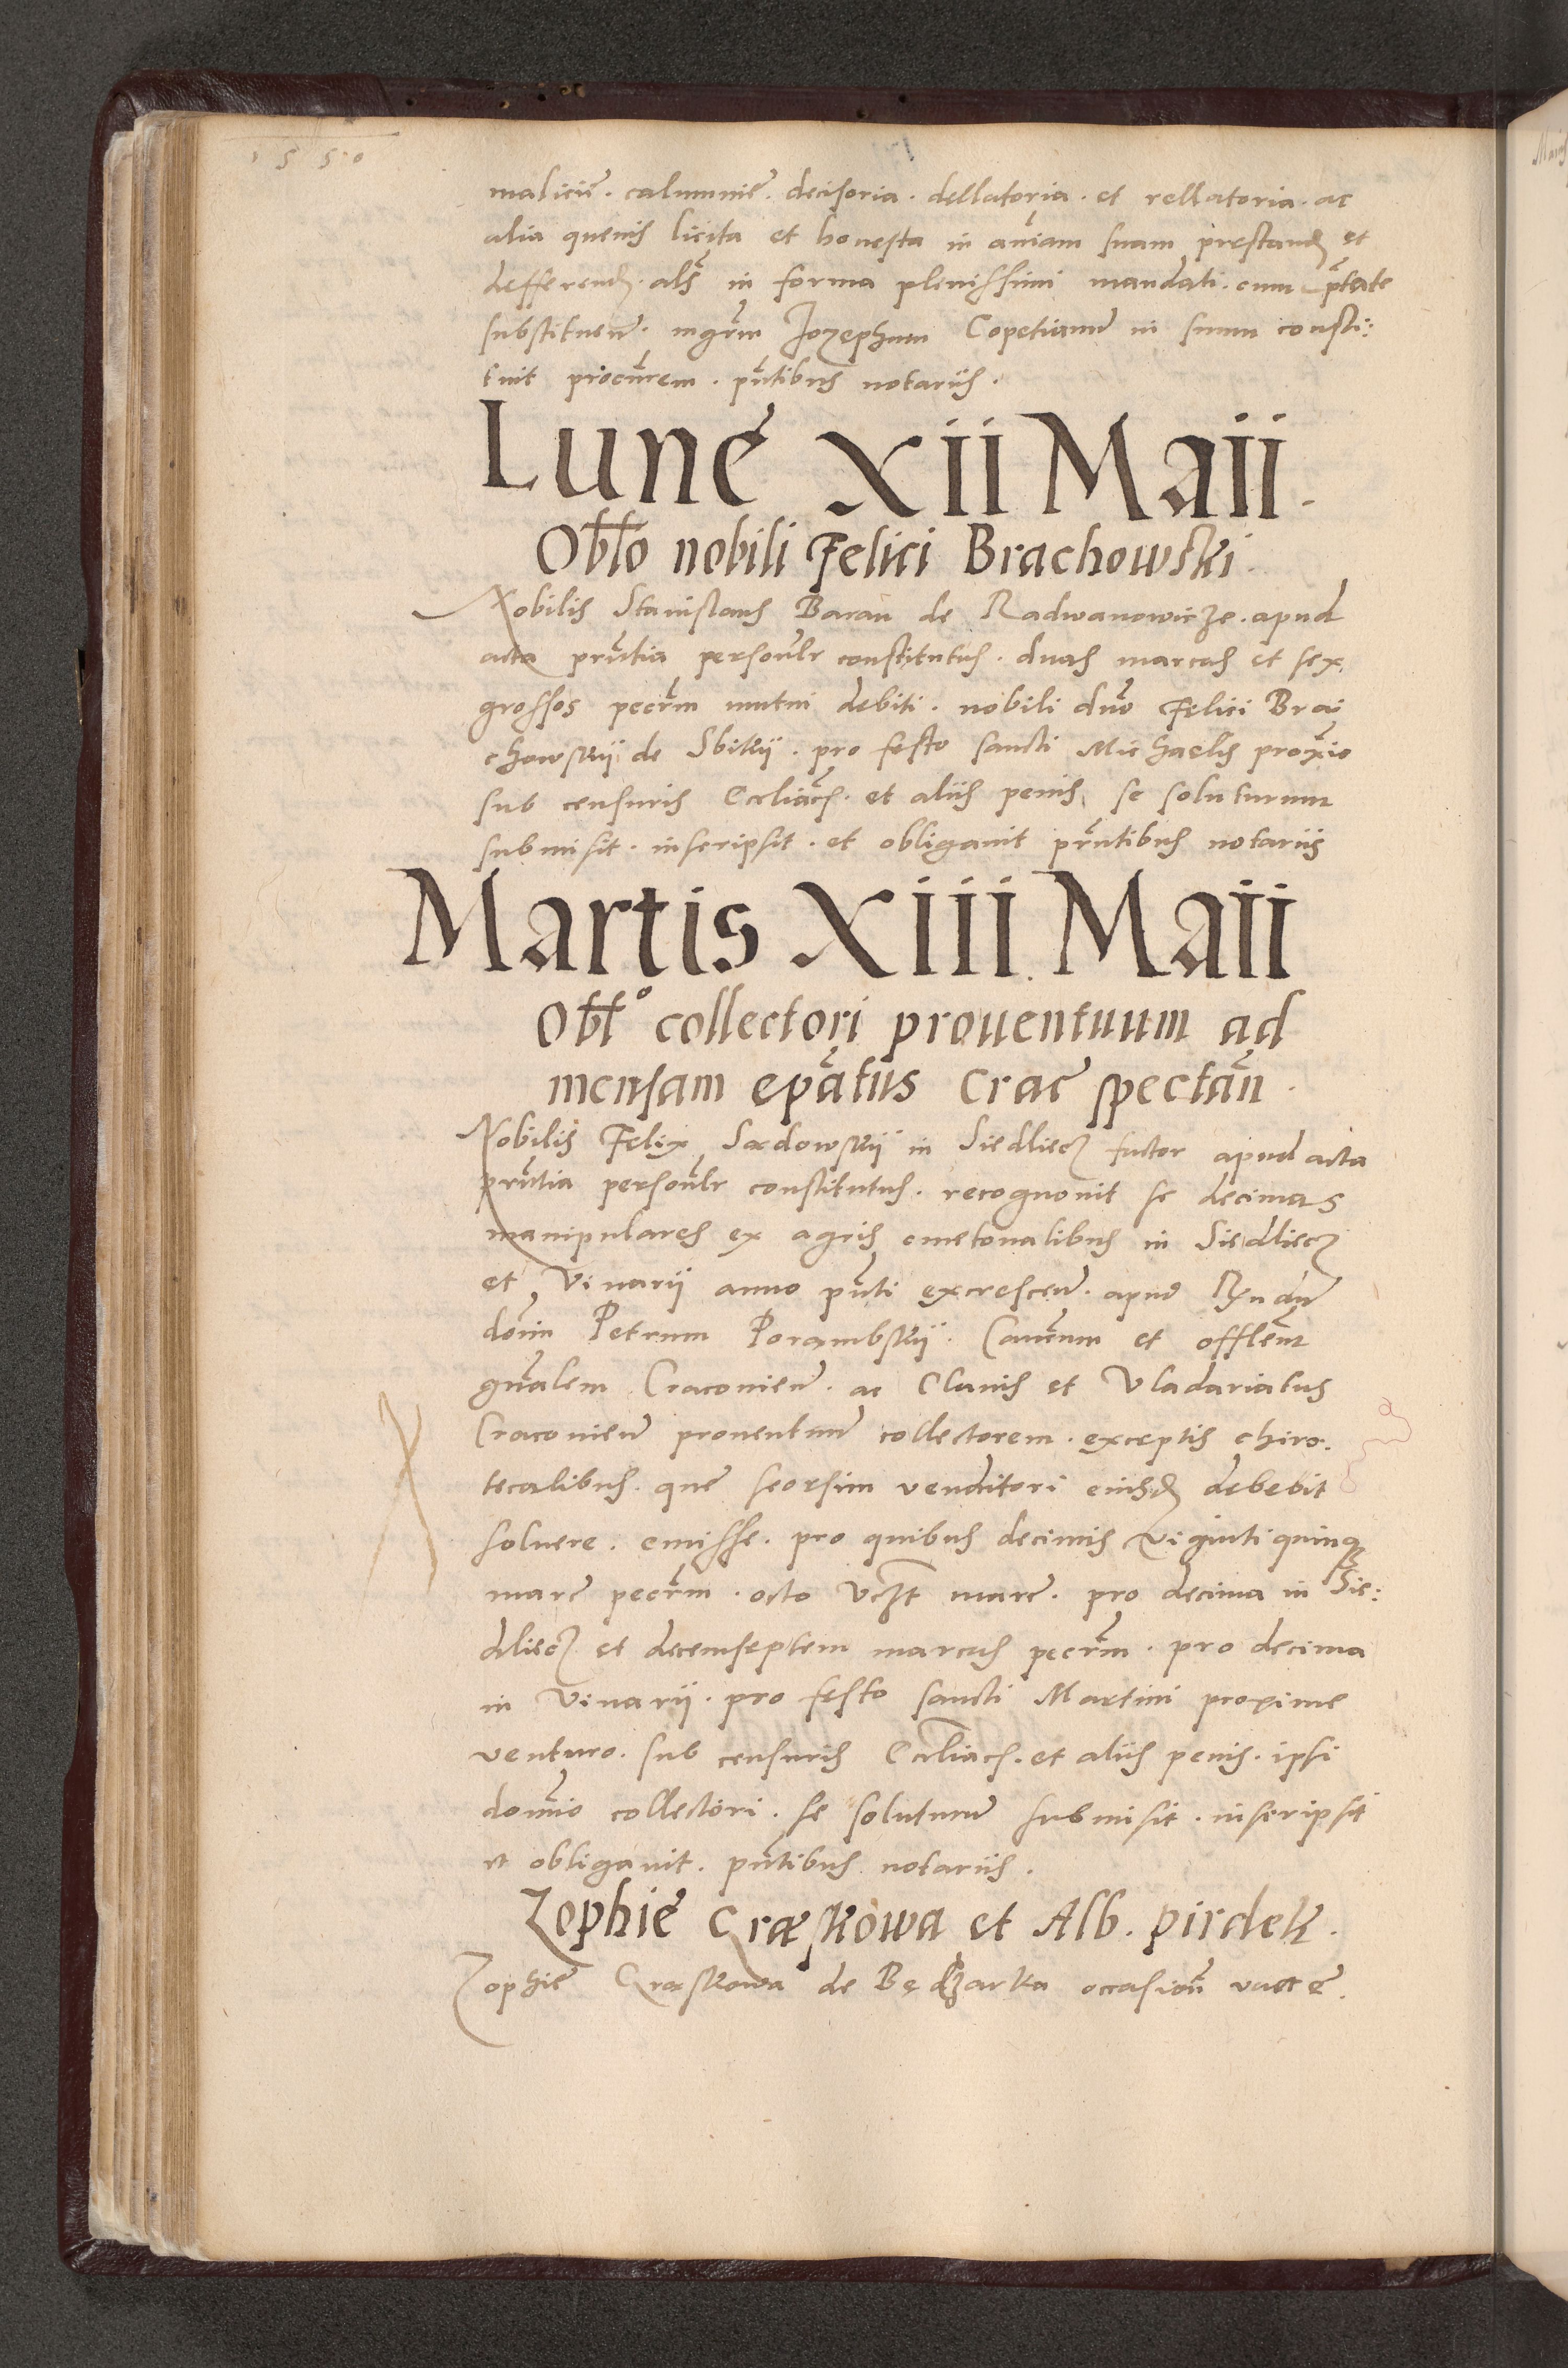 1550
malicie͂. calumnie͂. decisoria. dellatoria. et rellatoria. ac
alia quenis licita et honesta in ani͂am suam prestand et
defferend. als͂ in forma plenissimi mandati. cum p͂tate
substituen͂. mgr͂m Jozephum Copetianu͂ in suum consti:
tuit procur͂em. pn͂tibus notariis.
Lune XII Maii.
Obl͂o nobili Felici Brachowski.
Nobilis Stanislaus Baran de Radwanowicze. apud
acta prn͂tia personl͂r constitutus. duas marcas et sex
grossos pecr͂m mutui debiti. nobili dn͂o Felici Bra
chowskij de Sbikij. pro festo sancti Michaelis prox͂io
sub censuris Ecclia͂s. et aliis penis se soluturum
submisit. inscripsit. et obligauit prn͂tibus notariis
Martis XIII Maii
Obl͂o collectori prouentuum ad
mensam ep͂atus Crac͂ spectan͂.
Nobilis Felix Sadowskij in Siedliecz factor apud acta
prn͂tia personl͂r constitutus. recognouit se decimas
manipulares ex agris cmetonalibus in Siedliecz
et Vinarij anno pn͂ti excrescen͂. apud Rn͂du͂
dom͂ Petrum Porambskij. Can͂cum et offl͂em
gn͂alem Cracouien͂. ac Clauis et Vladariatus
Cracouien͂ prouentuu͂ collectorem. exceptis chiro.
tecalibus. que seorsim venditori eiusd debebit
soluere. emisse. pro quibus decimis viginti quinq
marc͂ pecr͂m. octo vczt marc͂. pro decima in Sie:
dliecz et decemseptem marcas pecr͂m. pro decima
in Vinarij. pro festo sancti Martini proxime
venturo. sub censuris Ecclia͂s. et aliis penis. ipsi
dom͂io collectori. se soluturu͂ submisit. inscripsit
et obligauit. pn͂tibus notariis.
Zophie Craskowa et Alb. pirdek.
Zophie͂ Craskowa de Będzarka occasion͂ vacce͂.